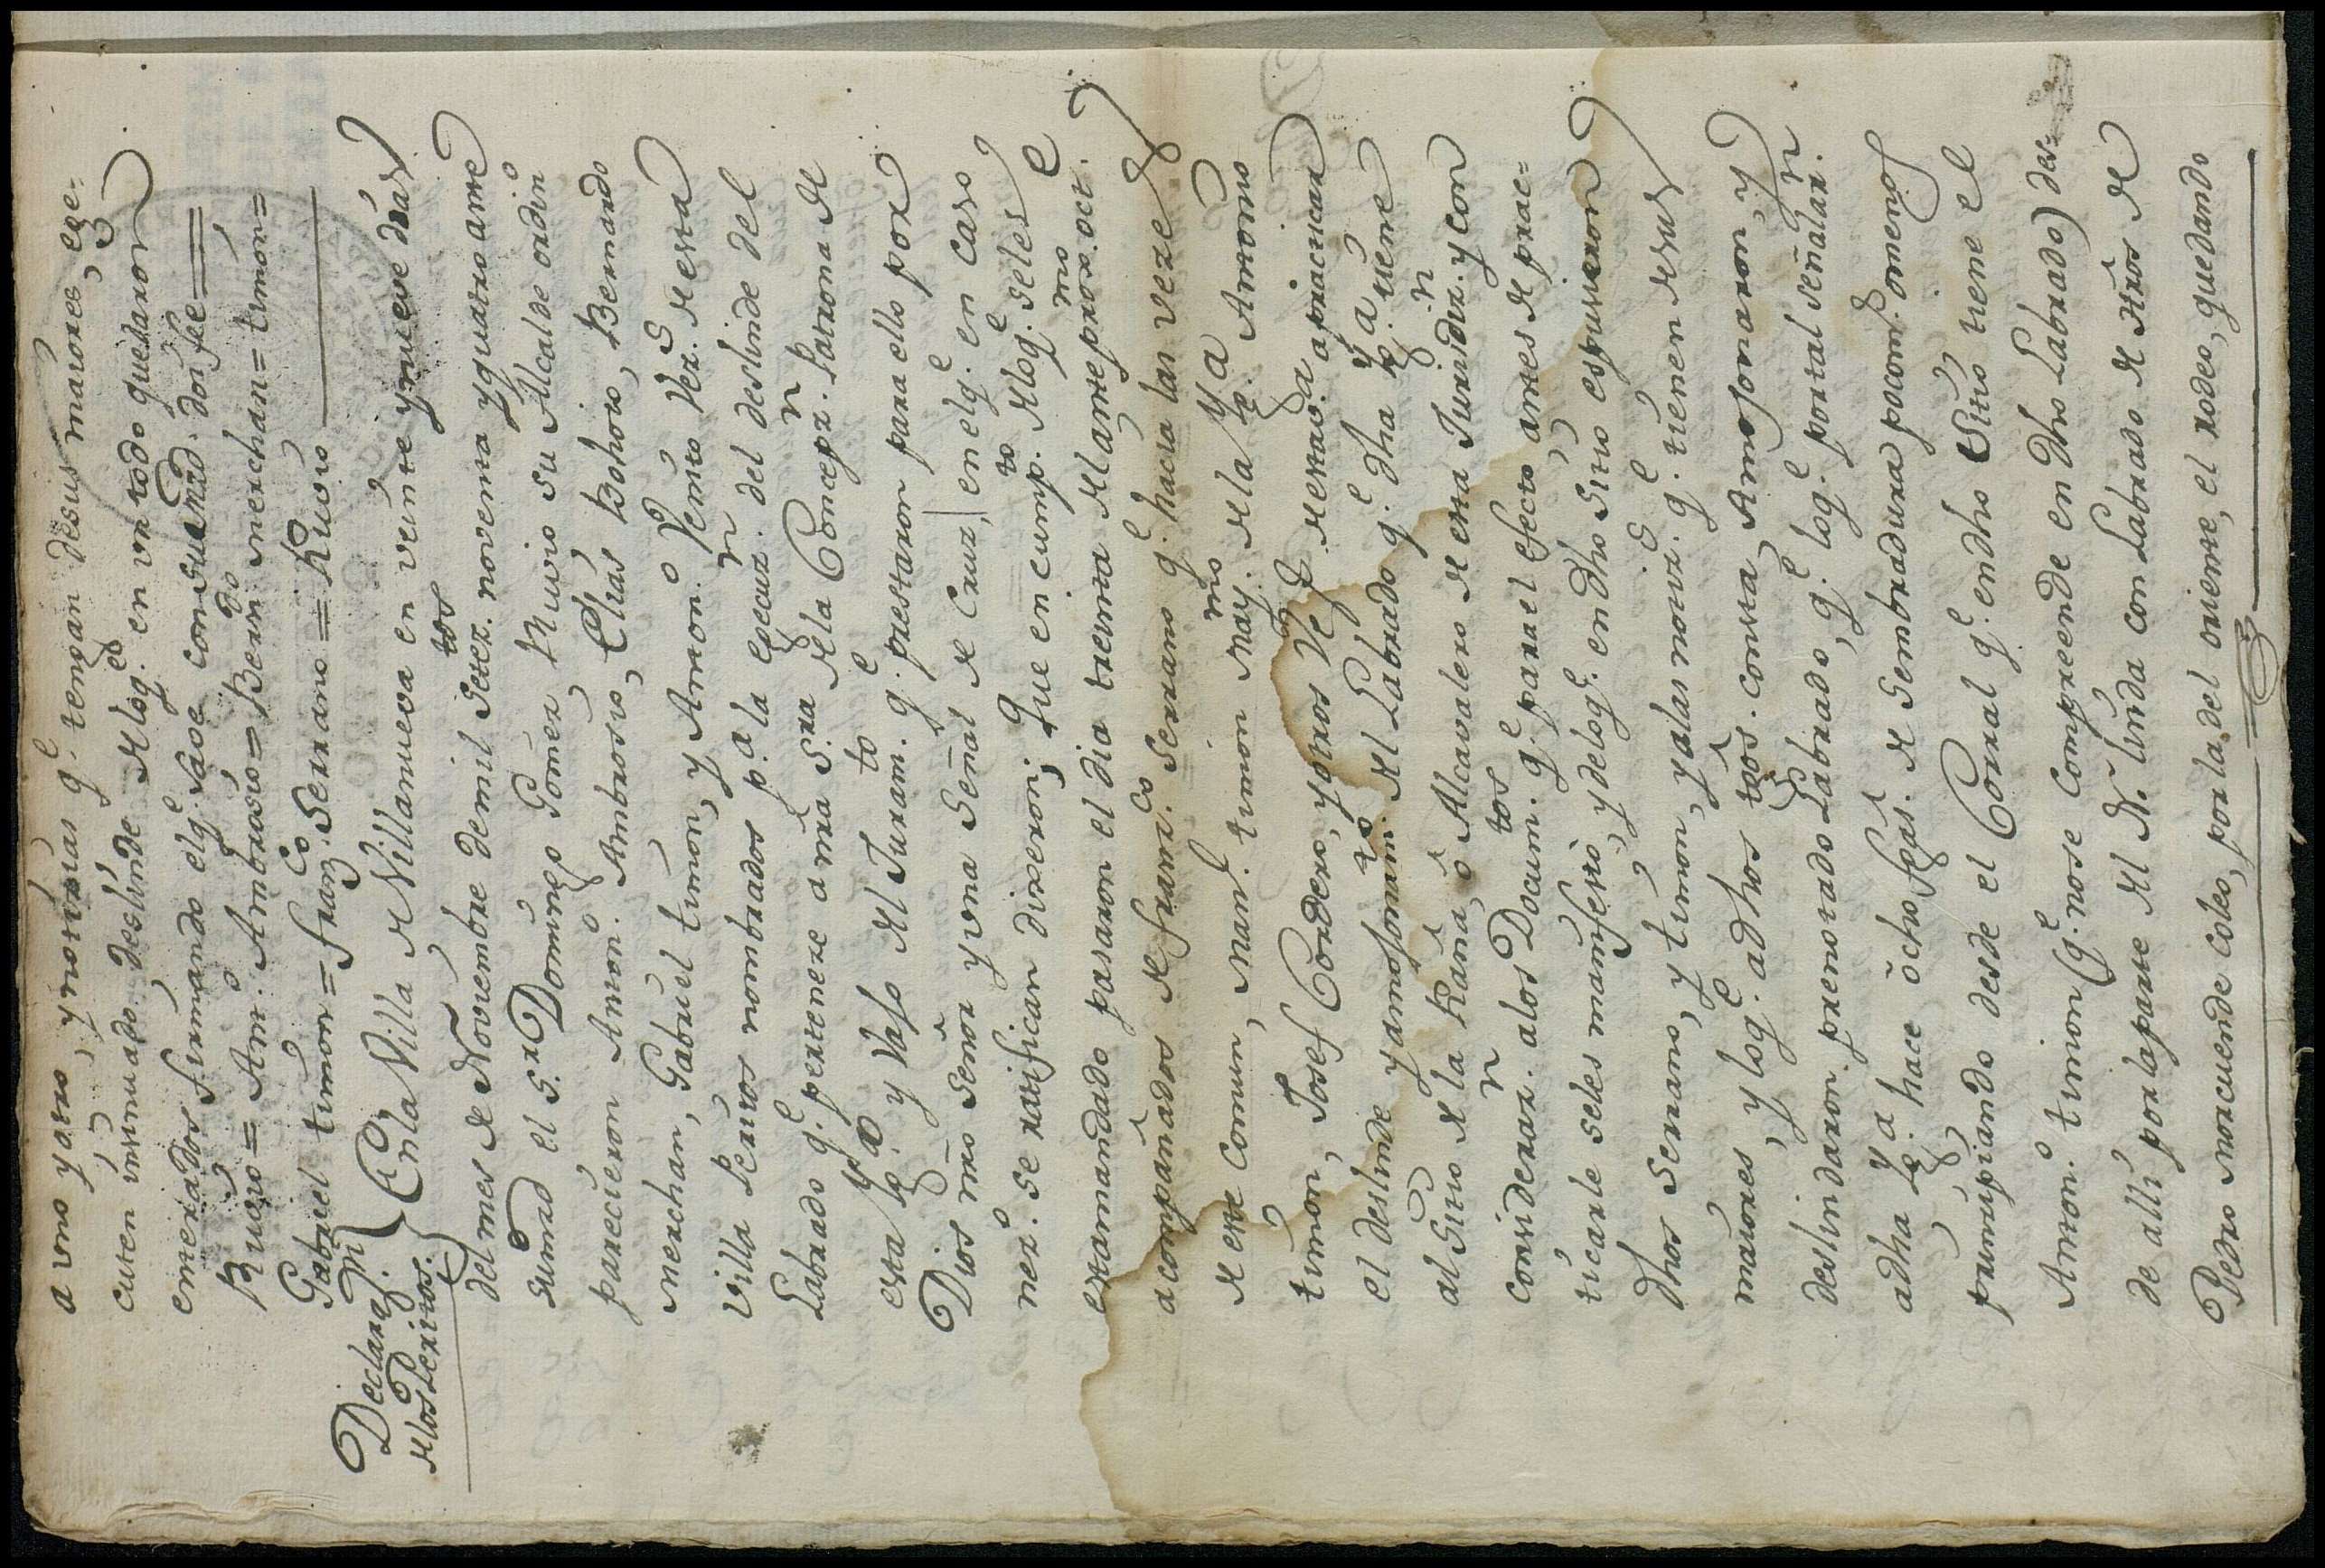 a uno y otro, y noticias q.e tengan de sus maiores, exe-
cuten insinuado deslinde de loq.e en un todo quedaron
enterados firmando el q.e save con su mrd. doi fee =
Ruvio = Ant.o Ambrosio = Bern.do merchan = timon =
Gabriel timon = Franz.co Serrano = Ruvio
Declaraz.n
de los Peritos.
En la Villa de Villanueva en veinte y nueve dias
del mes de Noviembre de mil Setez.tos noventa y quatro ante
su mrd el S.r Domingo Gomez, Ruvio su Alcalde ordin.o
parecieron Anton.o Ambrosio, Elias Bohoio, Bernardo
merchan, Gabriel timon, y Anton.o Venito Vez.s de esta
villa Peritos nombrados p.a la execuz.n del deslinde del
Labrado q.e pertenece a nra S.ra de la Concepz.n Patrona de
esta Yg.a y vajo del Juram.to q.e prestaron para ello por
Dios nro Señor y una Señal de Cruz, en el q.e en caso
nez.o se ratifican dixeron; Que en cump.to de loq.e seles e
estamandado pasaron el dia treinta del anteprox.mo oct.e
acompañados de Franz.co Serrano q.e hacia las veze
de este Comun, Man.l timon May.mo de la Yg.a Antonio
timon, Josef Cordero, y otros Vez.s de esta v.a a practicar
el deslinde y amojonam.to del Labrado q.e dha Yg.a tiene
al Sitio de la Raña, o Alcavalero de esta Jurisdiz.n y con
consideraz.n a los Docum.tos q.e para el efecto, antes de prac-
ticarle seles manifesto, y de loq.e en dho Sitio espusieron
dhos Serrano, y timon, y alas notiz.s q.e tienen de sus
maiores, y loq.e a dhos todos consta, Amojonaron, y
deslindaron prenotado Labrado, q.e loq.e por tal señalar.n
a dha Yg.a hace ocho fegas. de Sembradura poco m.s o menos
principiando desde el Corral q.e en dho Sitio tiene el
Anton.o timon (q.e no se comprende en dho Labrado) des-
de alli por la parte del N. linda con Labrado de Sitios de
Pedro Morcuende coles, por la del oriente, el rodeo, quedando